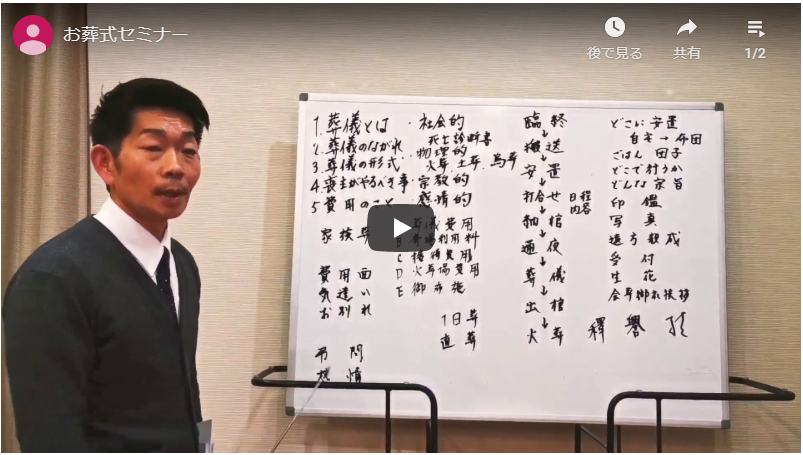 お葬式セミナー
後で見る
共有
1/2
1. 葬儀とは
2. 葬儀のながれ
3. 葬儀の形式
4. 喪主がやるべき事
5 費用のこと
家族葬
費用面
気遣い
お別れ
弔問
・社会的
死亡診断書
・物理的
火葬 土葬 鳥葬
・宗教的
・感情的
葬儀費用
B 斎場利用料
C 接待費用
D 火葬場費用
E 御布施
1日葬
直葬
臨終
搬送
安置
打合せ 日程
内容
納棺
通夜
葬儀
出棺
火葬
どこに安置
自宅→布団
ごはん 団子
どこで行うか
どんな宗旨
印鑑
写真
遺方親戚
受付
生花
会葬御礼挨拶
釋 譽